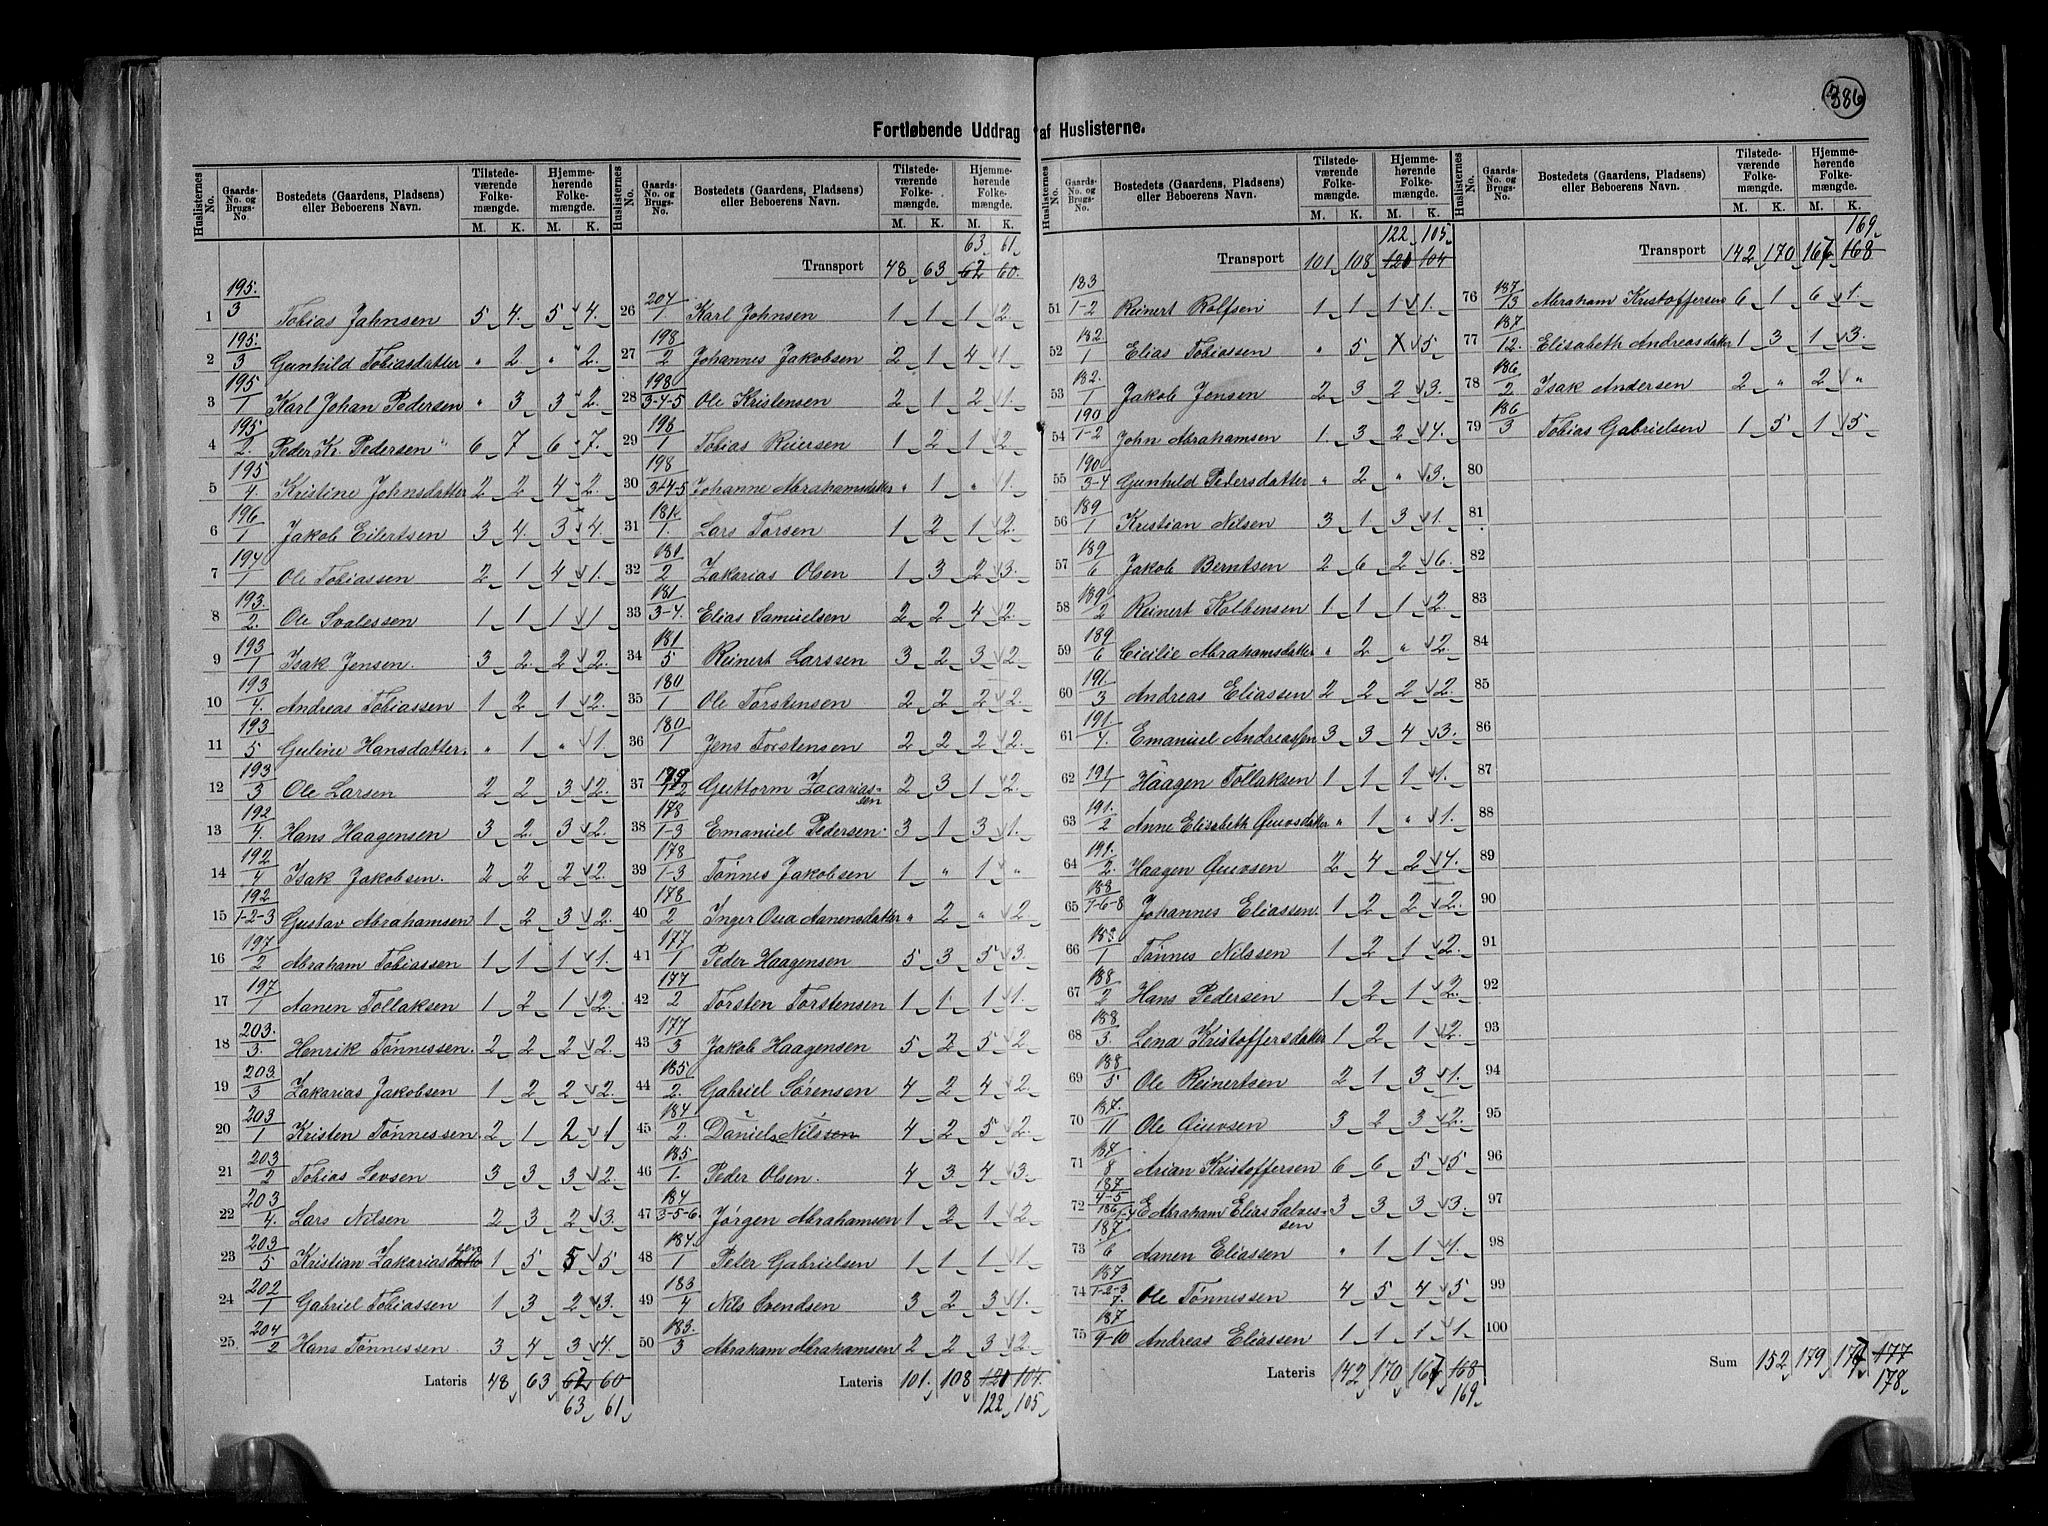 386
Fortløbende Uddrag af Huslisterne.
Huslisternes No. | Gaards-No. og Brugs-No. | Bostedets (Gaardens, Pladsens) eller Beboerens Navn. | Tilstedeværende Folkemængde. M. K. | Hjemmehørende Folkemængde. M. K.
1 195./3 Tobias Jahnsen 5 4. 5 4.
2 195./3 Gunhild Tobiasdatter " 2. " 2.
3 195/1 Karl Johan Pedersen " 3 3 2.
4 195/2. Peder Kr. Pedersen " 6 7 6 7.
5 195/4. Kristine Johnsdatter 2 2 4 2.
6 196/1 Jakob Eilertsen 3 4. 3 4.
7 194/1 Ole Tobiassen 2 1 4 1.
8 193./2. Ole Svalessen 1 1 1 1.
9 193/1 Isak Jensen. 3 2 2 2.
10 193/4. Andreas Tobiassen 1 2 1 2.
11 193/5 Guline Hansdatter. " 1 " 1.
12 193/3 Ole Larsen 2 2 3 2.
13 192/4. Hans Haagensen 3 2. 3 2.
14 192/4 Isak Jakobsen. 2 2 2 2.
15 192/1-2-3 Gustav Abrahamsen 1 2 3 2.
16 197/2 Abraham Tobiassen 1 1 1 1.
17 197/1 Aanen Tollaksen 1 2 1 2.
18 203./3. Henrik Tønnessen. 2 2 2 2.
19 203./3 Zakarias Jakobsen 1 2 2 2.
20 203/1 Kristen Tønnessen. 2 1 2 1
21 203/2 Tobias Levsen 3 3 3 2.
22 203/4. Lars Nilsen 2 3 2 3.
23 203/5 Kristian Zakariassen 1 5 5 5
24 202/1 Gabriel Tobiassen 1 3 2 3.
25. 204/2 Hans Tønnessen 3 4 3 4.
Lateris 48 63 62 60
63 61
63 61
Transport 48 63 62 60.
26 204/1 Karl Johnsen 1 1 1 2.
27 198/2 Johannes Jakobsen 2 1 4 1.
28 198/3-4-5 Ole Kristensen 2 1 2 1.
29 198/1 Tobias Reiersen 1 2 1 2
30 198/3-4-5 Johanne Abrahamsdatter " 1 " 1.
31 181./1. Lars Torsen 1 2 1 2.
32 181/2 Zakarias Olsen 1 3 2 3.
33 181/3-4. Elias Samuelsen 2 2 4 2.
34 181/5 Reinert Larssen 3 2 3 2
35 180/1 Ole Torstensen 2 2 2 2.
36 180/1 Jens Torstensen 2 2 2 2.
37 179/1-2 Guttorm Zacariassen 2 3 1 2.
38 178/1-3 Emanuel Pedersen. 3 1 3 1.
39 178/1-3 Tønnes Jakobsen 1 " 1 "
40 178/2 Inger Osea Aanensdatter " 2 " 2.
41 177/1 Peder Haagensen 5 3 5 3.
42 177/2 Torsten Torstensen 1 1 1 1.
43 177/3 Jakob Haagensen 5 2 5 2
44 185/2. Gabriel Sørensen 4 2 4 2.
45 184/2. Daniel Nilssen 4 2 5 2.
46 185/1. Peder Olsen. 4 3 4 3.
47 184/3-5-6. Jørgen Abrahamsen 1 2 1 2
48 184/1 Peter Gabrielsen 1 1 1 1
49 183/4 Nils Svendsen 3 2 3 1.
50 183./3 Abraham Abrahamsen 2 2 3 2
Lateris 101. 108 121 104.
122 105
122 105
Transport 101 108 121 104
51 183/1-2 Reinert Rolfsen 1 1 1 1.
52 182/1 Elias Tobiassen " 5 X 5
53 182./1 Jakob Jensen 2 3 2 3.
54 190/1-2 John Abrahamsen 1 3 2 4.
55 190/3-4 Gunhild Pedersdatter " 2 " 3.
56 189/1 Kristian Nilsen 3 1 3 1.
57 189/6 Jakob Berntsen 2 6 2 6.
58 189/2 Reinert Kolbensen 1 1 1 2
59 189/6 Cicilie Abrahamsdatter " 2 " 2
60 191./3 Andreas Eliassen 2 2 2 2.
61 191/4. Emanuel Andreassen 3 3 4 3.
62 191/1 Haagen Tollaksen 1 1 1 1.
63 191./2 Anne Elisabeth Guvsdatter " 1 " 1.
64 191./2. Haagen Guvsen 2 4 2 4.
65 188/1-6-8 Johannes Eliassen. 1 2 2 2.
66 188/1 Tønnes Nilssen 1 2 1 2.
67 188/2 Hans Pedersen 1 2 1 2.
68 188/3. Lena Kristoffersdatter 1 2 1 2
69 188/5 Ole Reinertsen 2 1 3 1.
70 187./11 Ole Guvsen 3 2 3 2.
71 187/8 Arian Kristoffersen 6 6 5 5
72 187/4-5 186/1-4 E Abraham Elias Salvessen 3 3 3 3.
73 187/6 Aanen Eliassen " 1 1 1.
74 187/1-2-3 7. Ole Tønnessen 4 5 4 5
75 187/9-10 Andreas Eliassen 1 1 1 1
Lateris 142 170 167 168
169
169
Transport 142 170 167 168
76 187/13 Abraham Kristoffersen 6 1 6 1.
77 187/12. Elisabeth Andreasdatter 1 3 1 3.
78 186/2 Isak Andersen 2 " 2 "
79 186/3 Tobias Gabrielsen 1 5 1 5
80
81
82
83
84
85
86
87
88
89
90
91
92
93
94
95
96
97
98
99
100
Sum 152 179 177 177
178